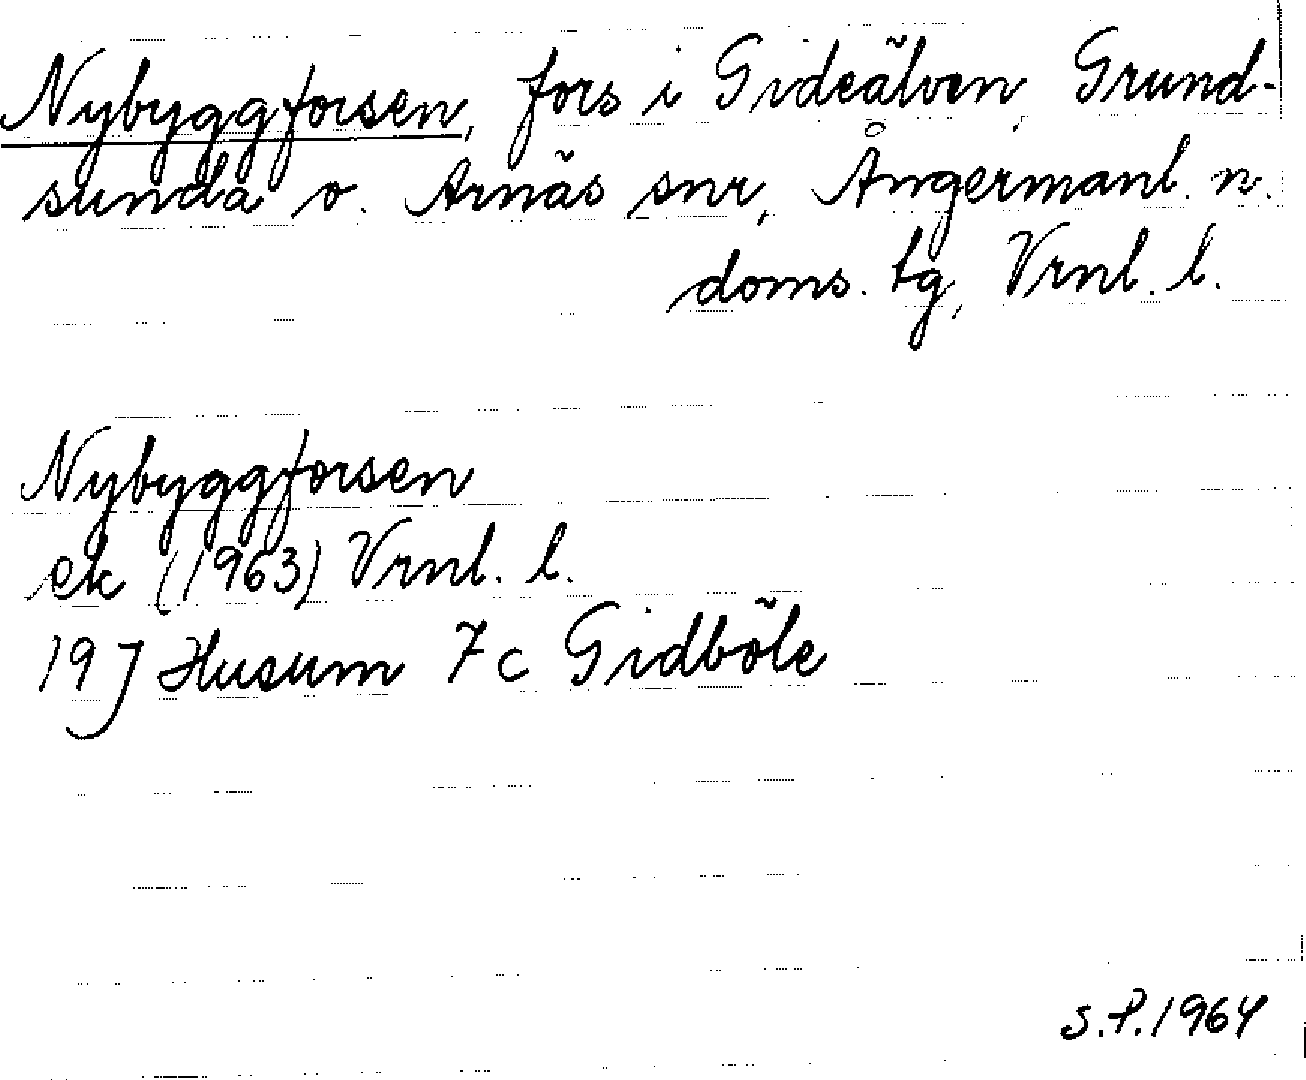 Nybyggforsen, fors i Gideälven, Grund-
sunda o. Arnäs snr, Ångermanl. n.
doms. tg, Vrnl. l.
Nybyggforsen
ek (1963) Vrnl. l.
19 J Husum 7c Gidböle
S.P.1964